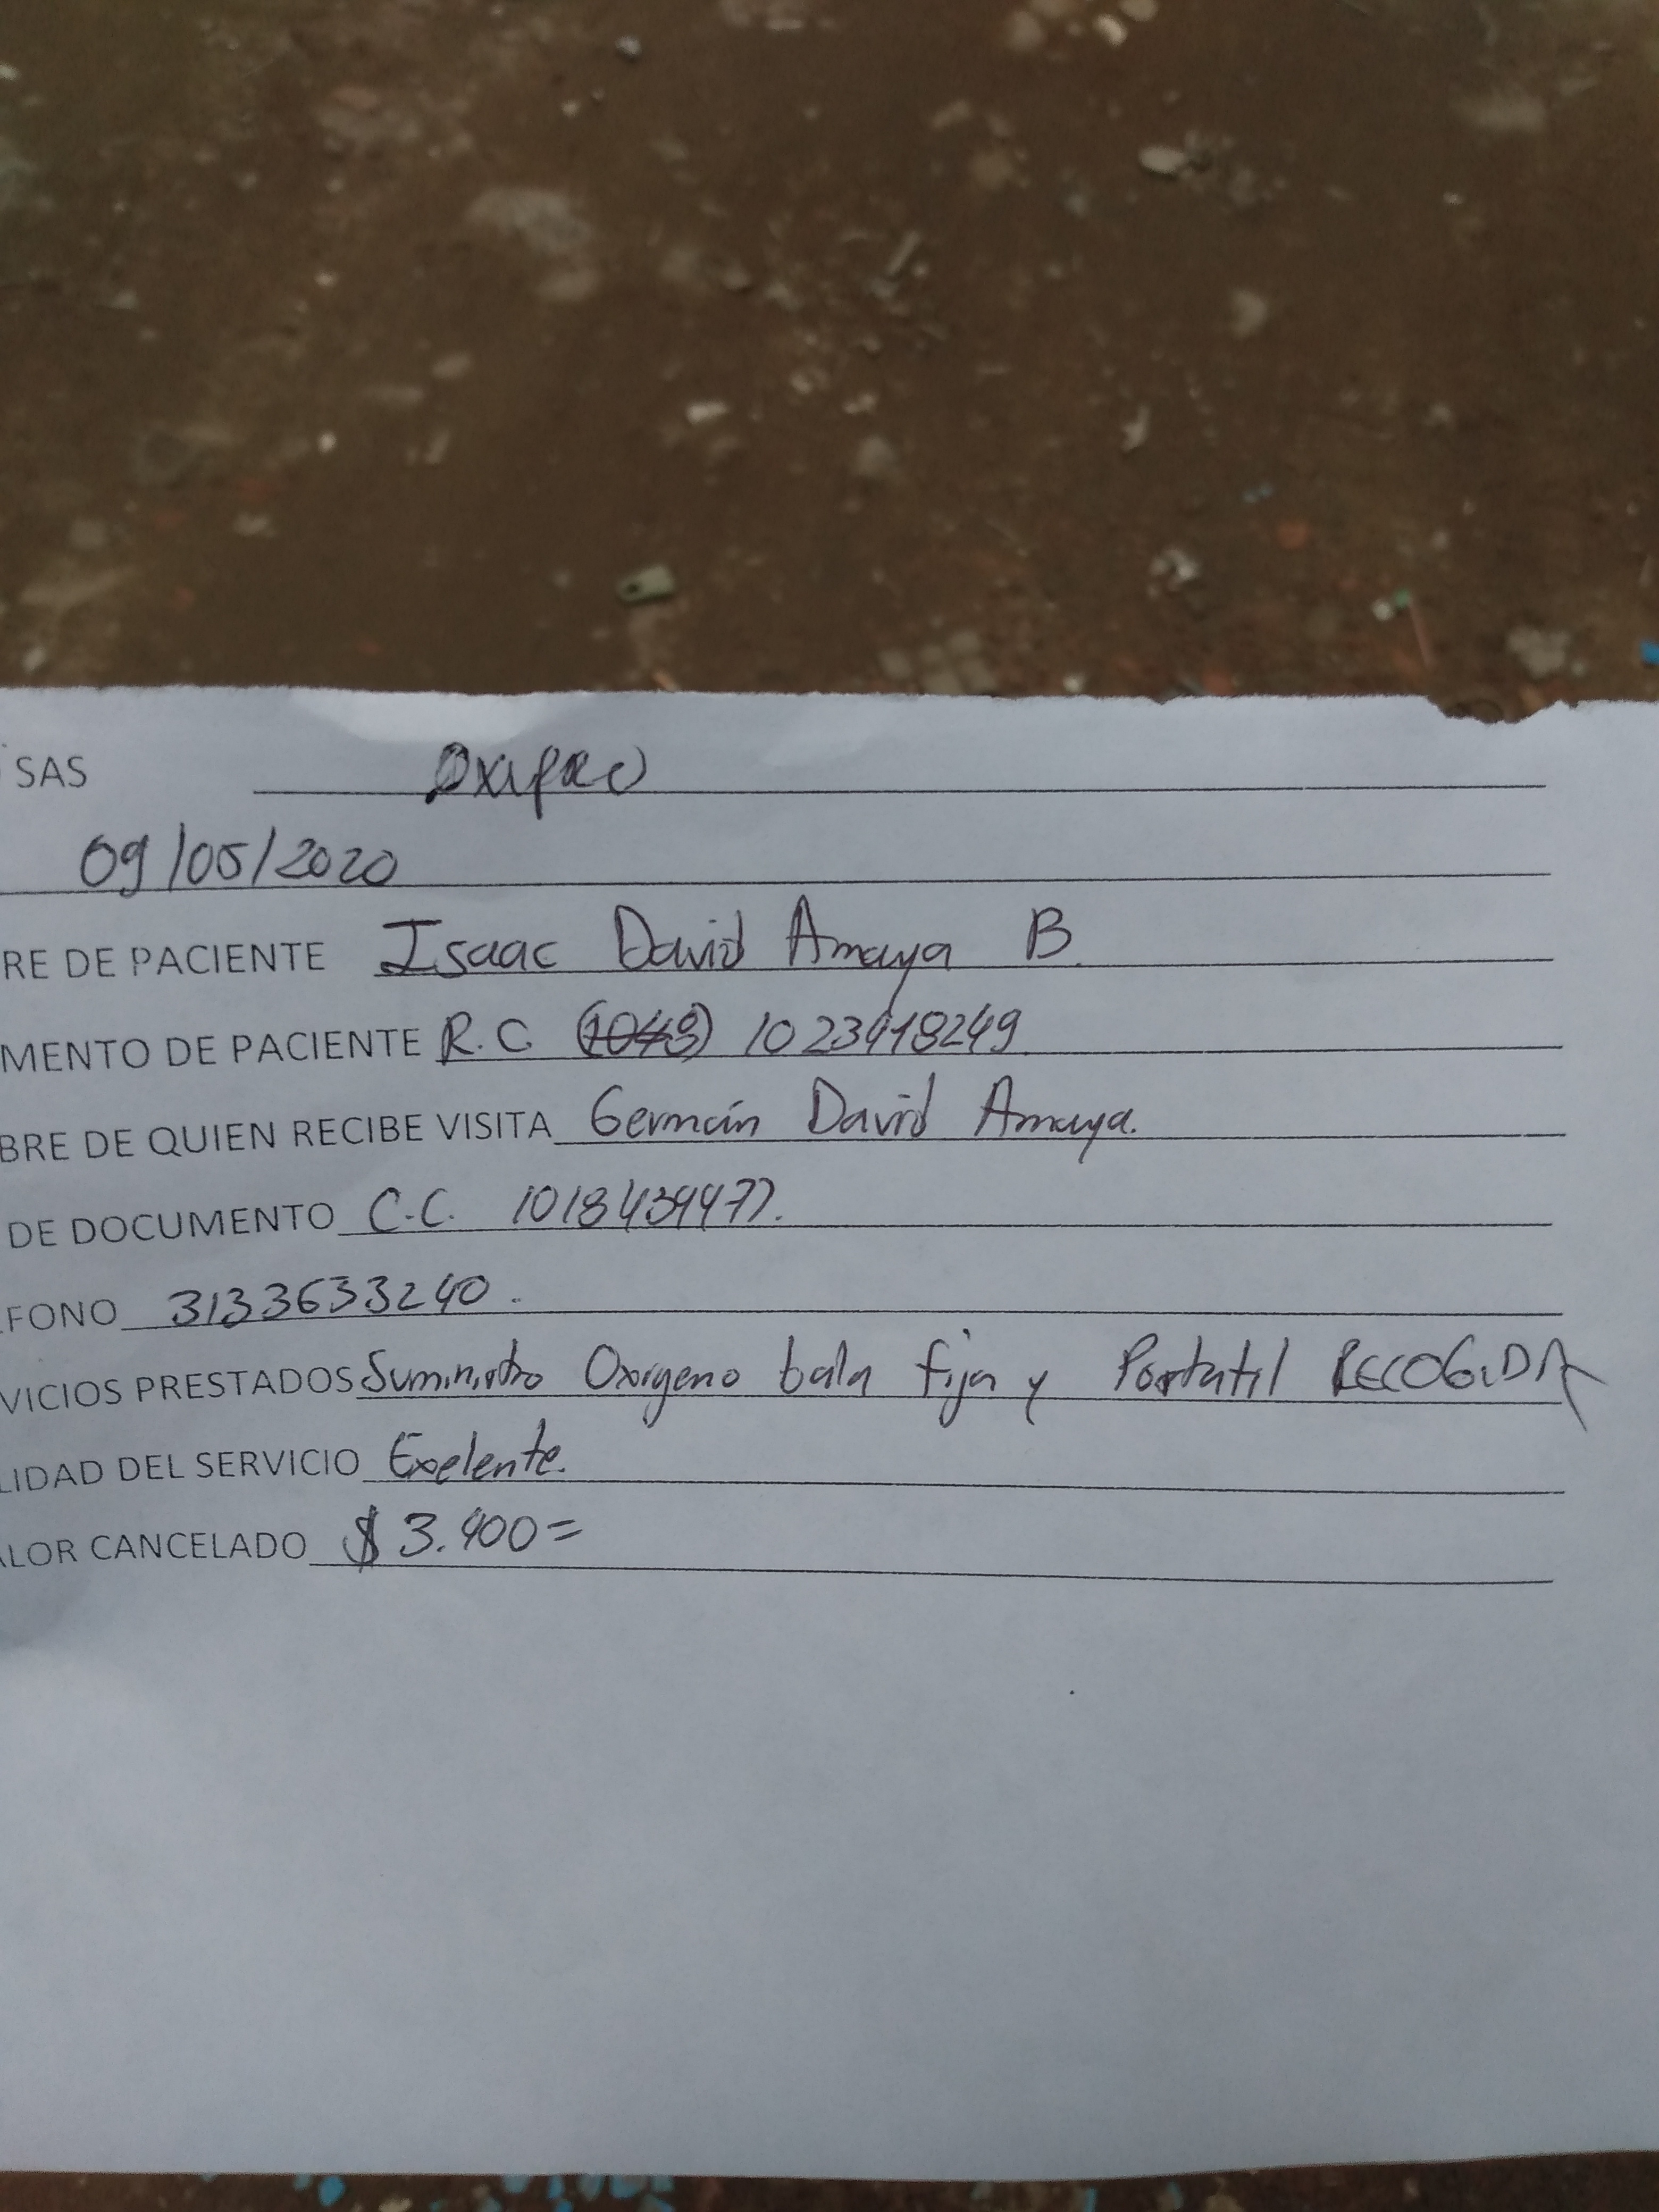 SAS Oxipro
09/05/2020
RE DE PACIENTE Isaac David Amaya B.
MENTO DE PACIENTE R.C. (1043) 1023418249
BRE DE QUIEN RECIBE VISITA Germán David Amaya.
DE DOCUMENTO C.C. 1018439477.
FONO 3133633240.
VICIOS PRESTADOS Suministro Oxigeno bala fija y Portatil RECOGIDA
LIDAD DEL SERVICIO Exelente.
ALOR CANCELADO $ 3.400=